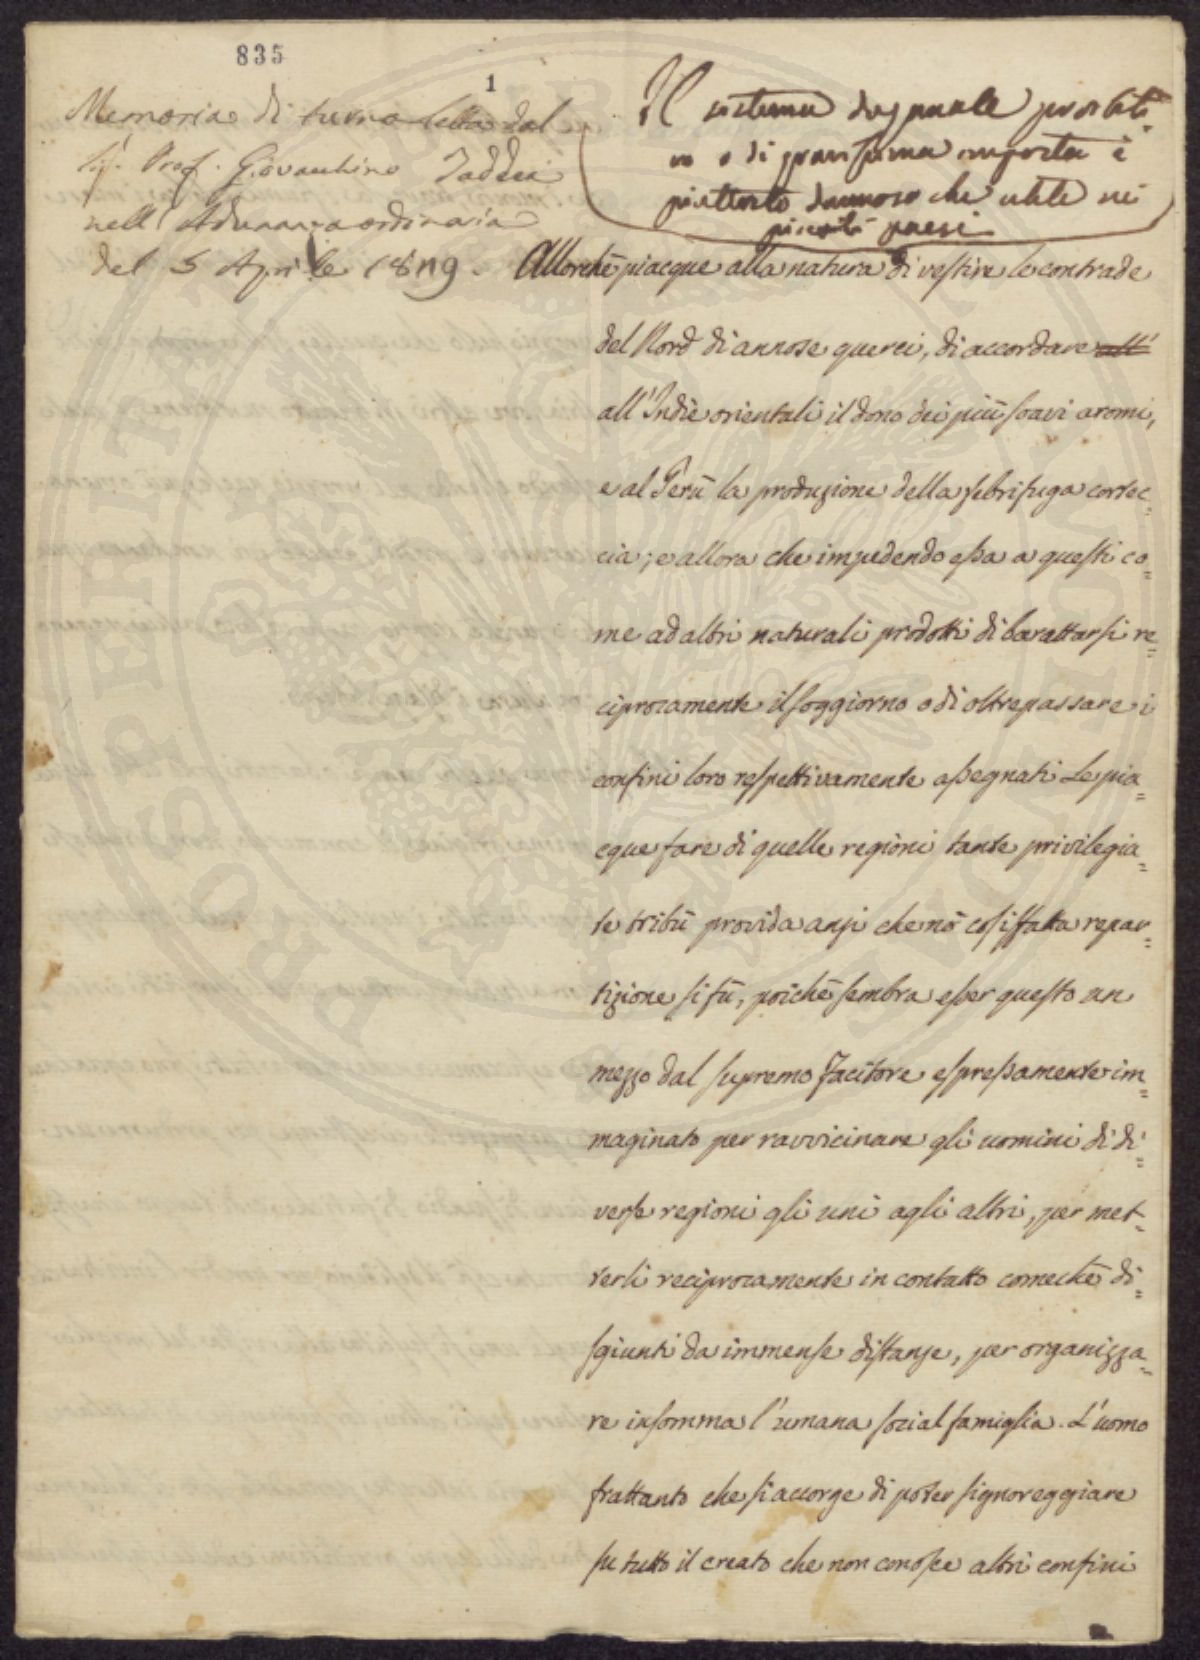 835
1
Memoria di turno letta dal
Sig. Prof. Giovacchino Taddei
nell' Adunanza ordinaria
del 5 Aprile 1819.
Il sistema doganale proibiti
vo o di gravissima importa è
piuttosto dannoso che utile nei
piccoli paesi
Allorchè piacque alla natura di vestire le contrade
del Nord di annose querci, di accordare all'
all'Indie orientali il dono dei più soavi aromi,
e al Perù la produzione della febrifuga cortec=
cia; e allora che impedendo essa a questi co=
me ad altri naturali prodotti di barattarsi re=
ciprocamente il soggiorno o di oltrepassare i
confini loro respettivamente assegnati Le pia=
cque fare di quelle regioni tante privilegia=
te tribù provida anzi che nò cosiffatta repar=
tizione si fù, poichè sembra esser questo un
mezzo dal supremo Facitore espressamente im=
maginato per ravvicinare gli uomini di di=
verse regioni gli uni agli altri, per met=
terli reciprocamente in contatto comechè di=
sgiunti da immense distanze, per organizza=
re insomma l'umana social famiglia. L'uomo
frattanto che si accorge di poter signoreggiare
su tutto il creato che non conosce altri confini
PROSPERITÀ